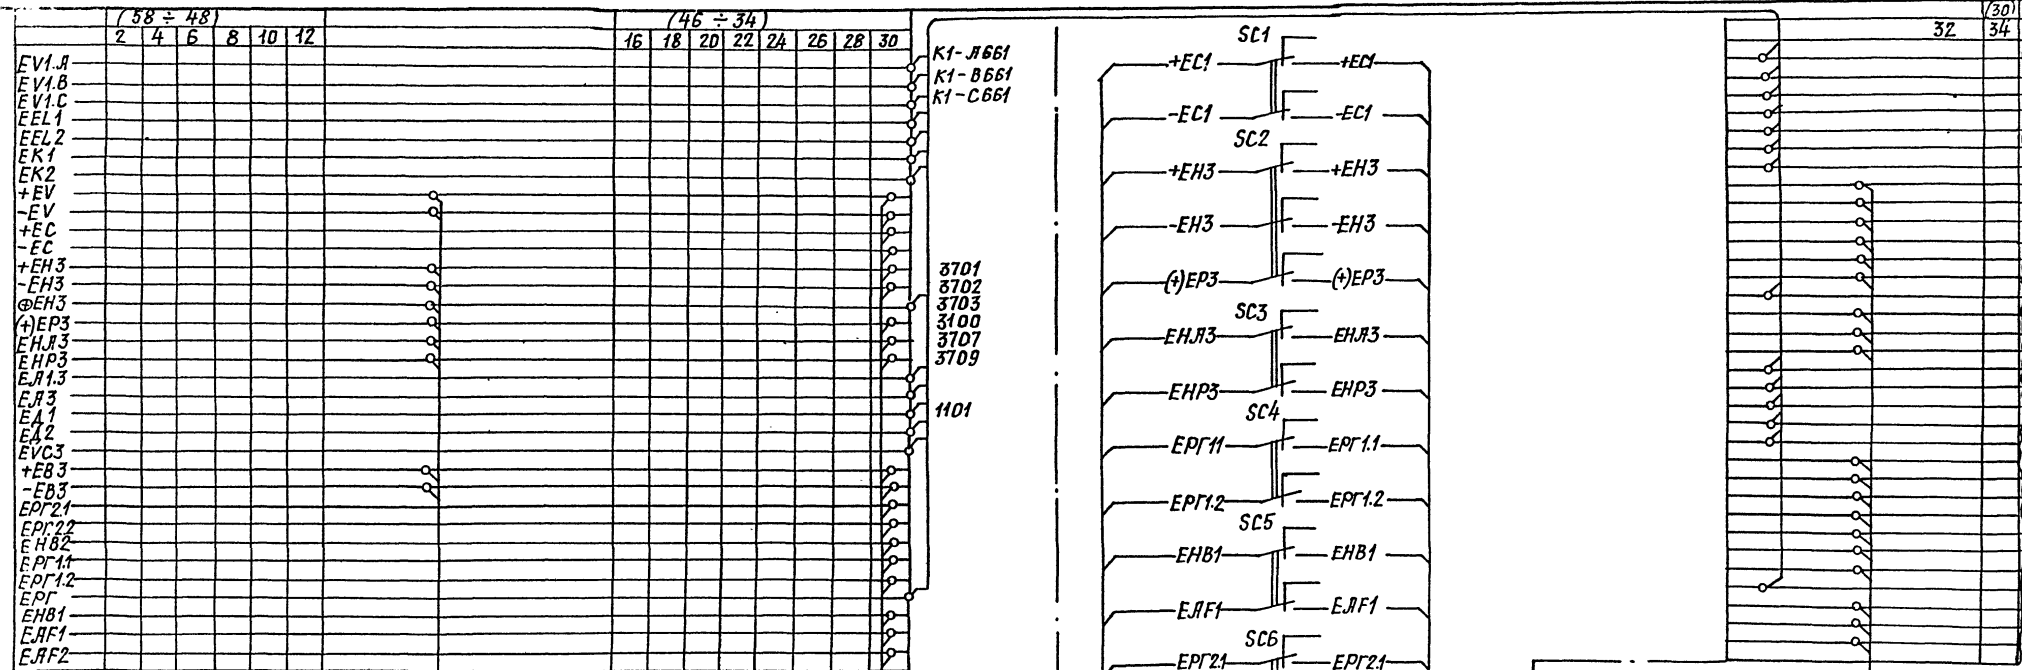 (58 ÷ 48) (46 ÷ 34) (30)
2 4 6 8 10 12 16 18 20 22 24 26 28 30 32 34
EV1.A
EV1.B
EV1.C
EEL1
EEL2
EK1
EK2
+EV
-EV
+EC
-EC
+EH3
-EH3
⊕EH3
(+)EP3
EHA3
EHP3
EA1.3
EA3
EД1
EД2
EVC3
+EB3
-EB3
EPГ2.1
EPГ.2.2
EHB2
EPГ1.1
EPГ1.2
EPГ
EHB1
EAF1
EAF2
K1-A661
K1-B661
K1-C661
3701
3702
3703
3100
3707
3709
1101
SC1
+EC1 +EC1
-EC1 -EC1
SC2
+EH3 +EH3
-EH3 -EH3
(+)EP3 (+)EP3
SC3
EHA3 EHA3
EHP3 EHP3
SC4
EPГ11 EPГ1.1
EPГ1.2 EPГ1.2
SC5
EHB1 EHB1
EAF1 EAF1
SC6
EPГ2.1 EPГ2.1